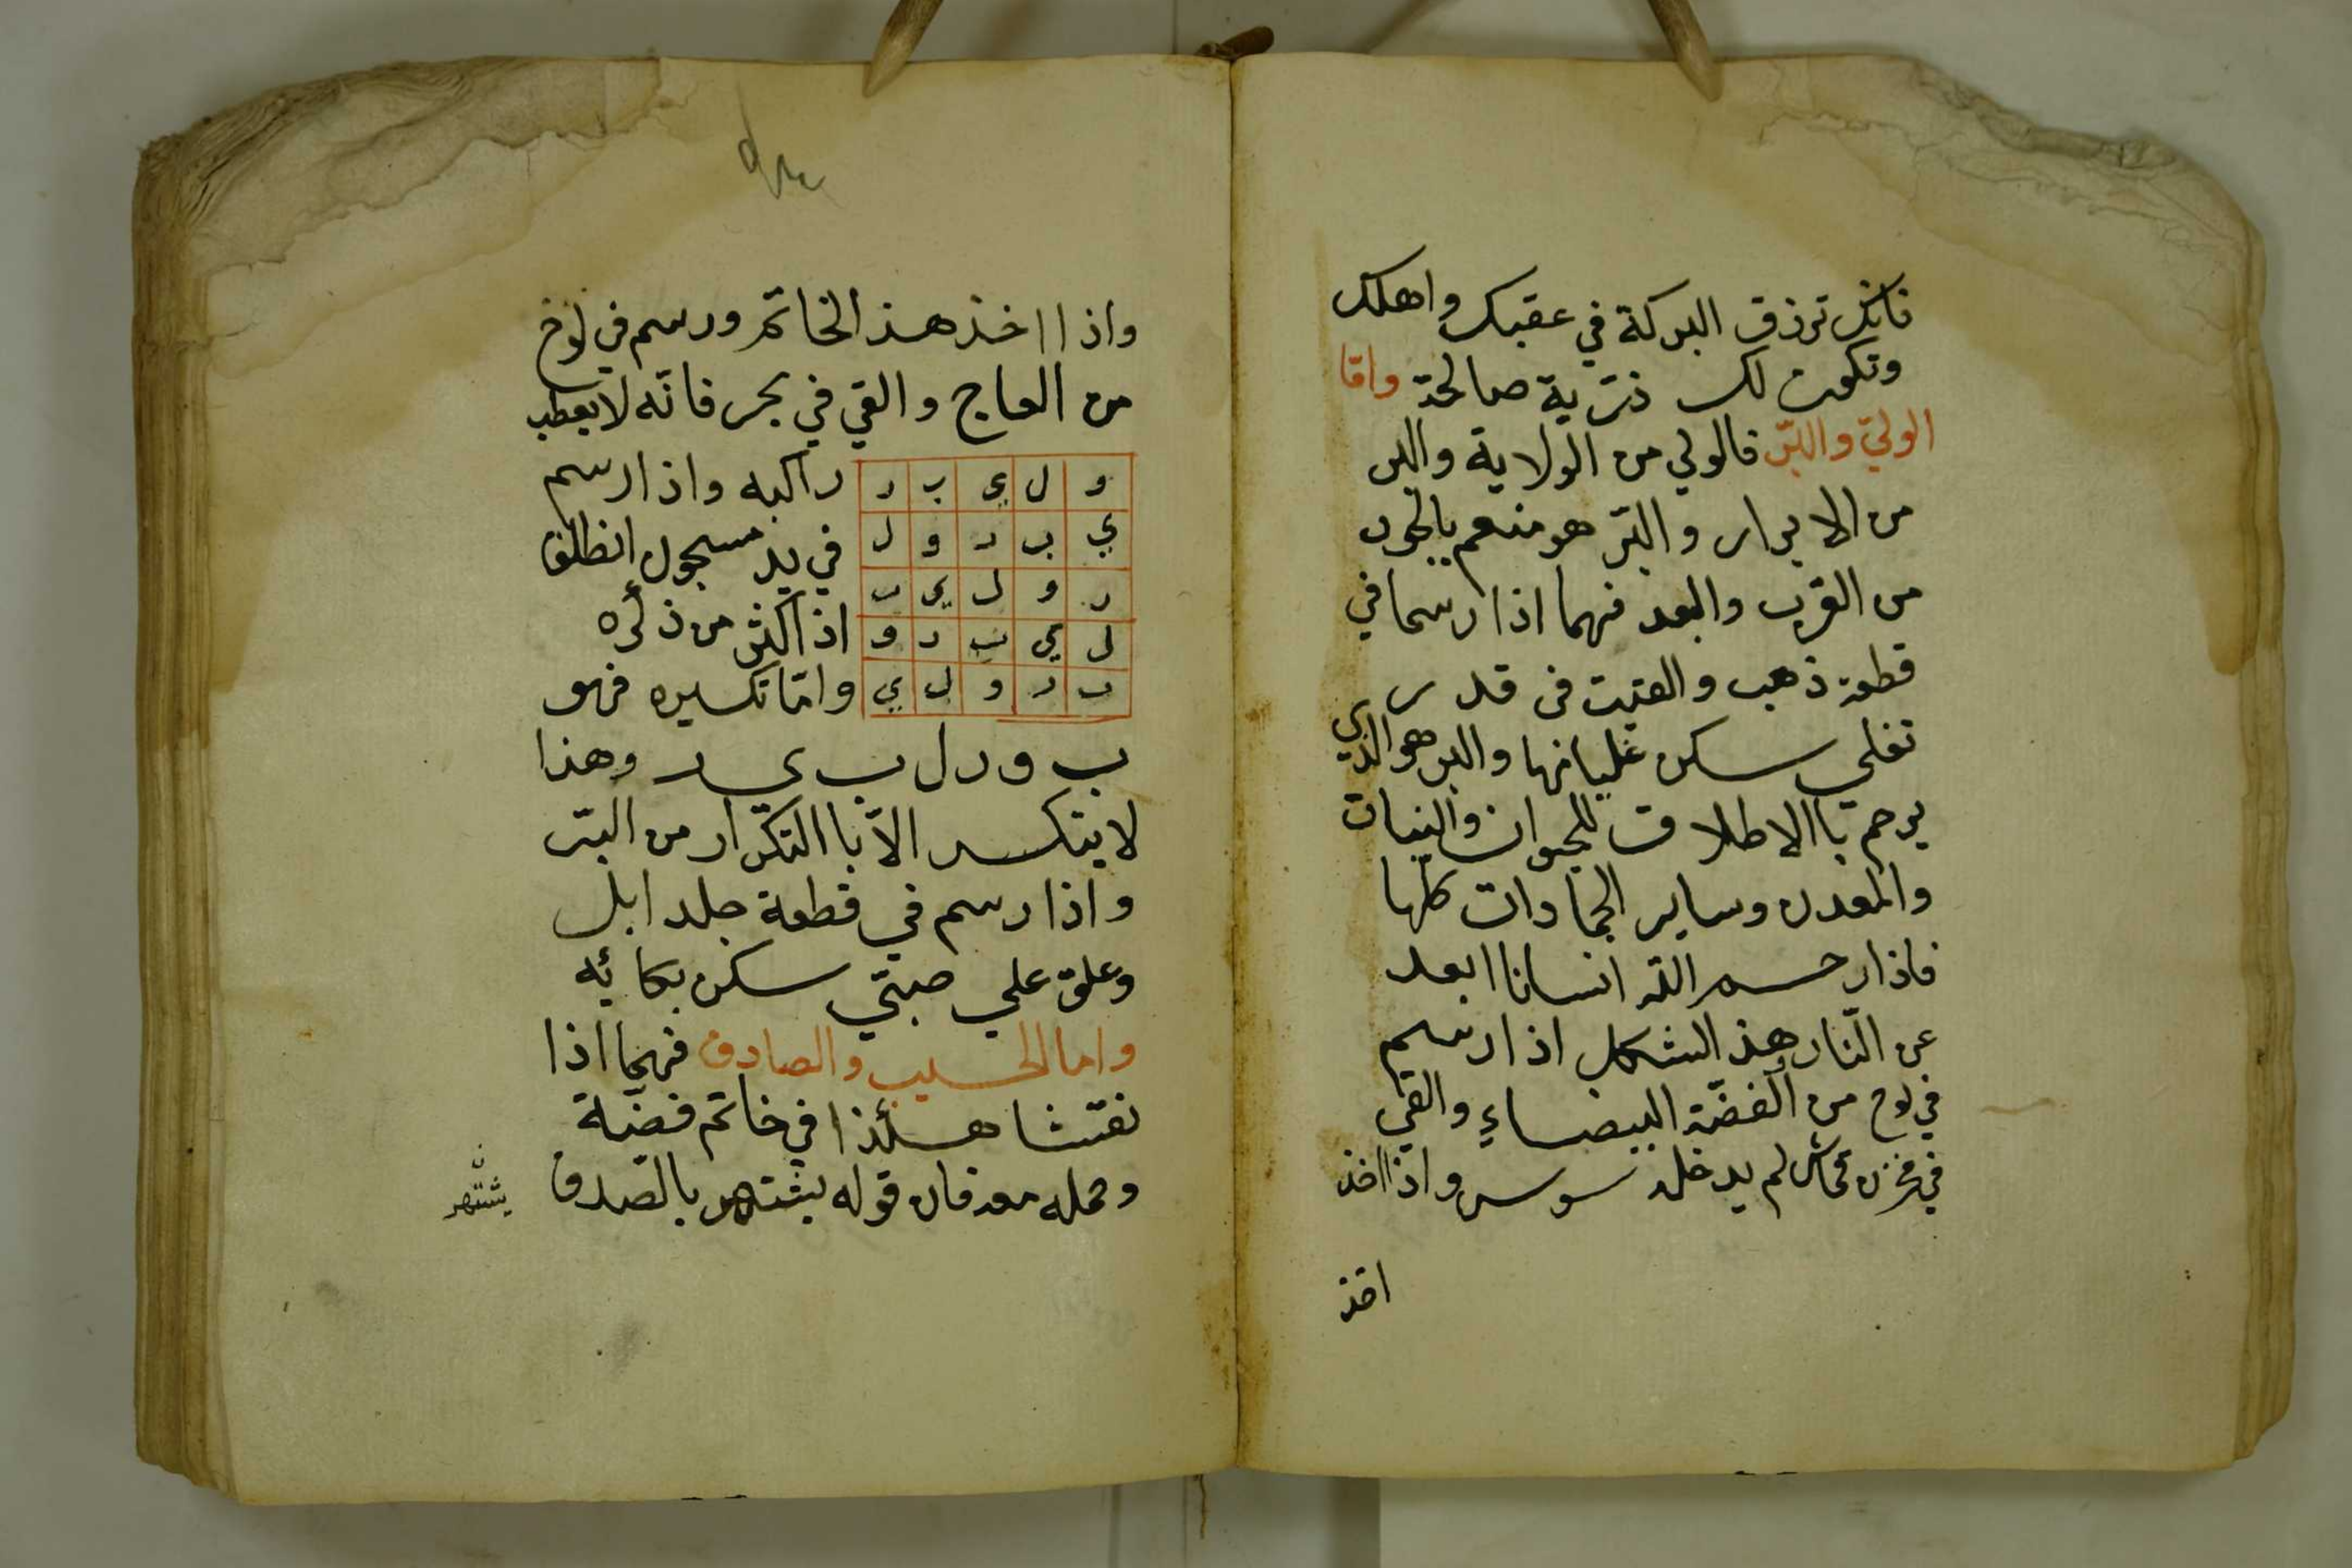 فانك ترزق البركة في عقبك واهلك
وتكون لك ذرية صالحة وامّا
الوليّ والبرّ فالولي من الولاية والبر
من الابرار والبرّ هو منعم بالجود
من القرب والبعد فهما اذا رسما في
قطعة ذهب والقيت في قدر
تغلي سكن غليانها والبر هو الذي
يرحم باالاطلاق للحيوان والنبات
والمعدن وساير الجمادات كلها
فاذا رحم الله انسانا ابعد
عن النّار هذ الشكل اذا رسم
في لوح من الفضّة البيضاءِ والقي
في مخزن قماش لم يدخله سوس واذا اخذ
اخذ
واذا اخذ هذ الخاتم ورسم في لوح
من العاج والقي في بحر فانّه لا يعطب
راكبه واذا رسم
في يد مسجون انطلق
اذا اكثر من ذكره
وامّا تكسيره فهو
و ل ي ب ر
ي ب ر و ل
ر و ل ي ب
ل ي ب ر و
ب ر و ل ي
ب و ر ل ب ي ر وهذا
لا يتكسر الّا باالتكرار من البرّ
واذا رسم في قطعة جلد ابل
وعلق علي صبيّ سكن بكائه
واما الحسيب والصادق فهما اذا
نقشا هكذا في خاتم فضّة
وحمله معه فان قوله يشتهر بالصّدق
يشتهر